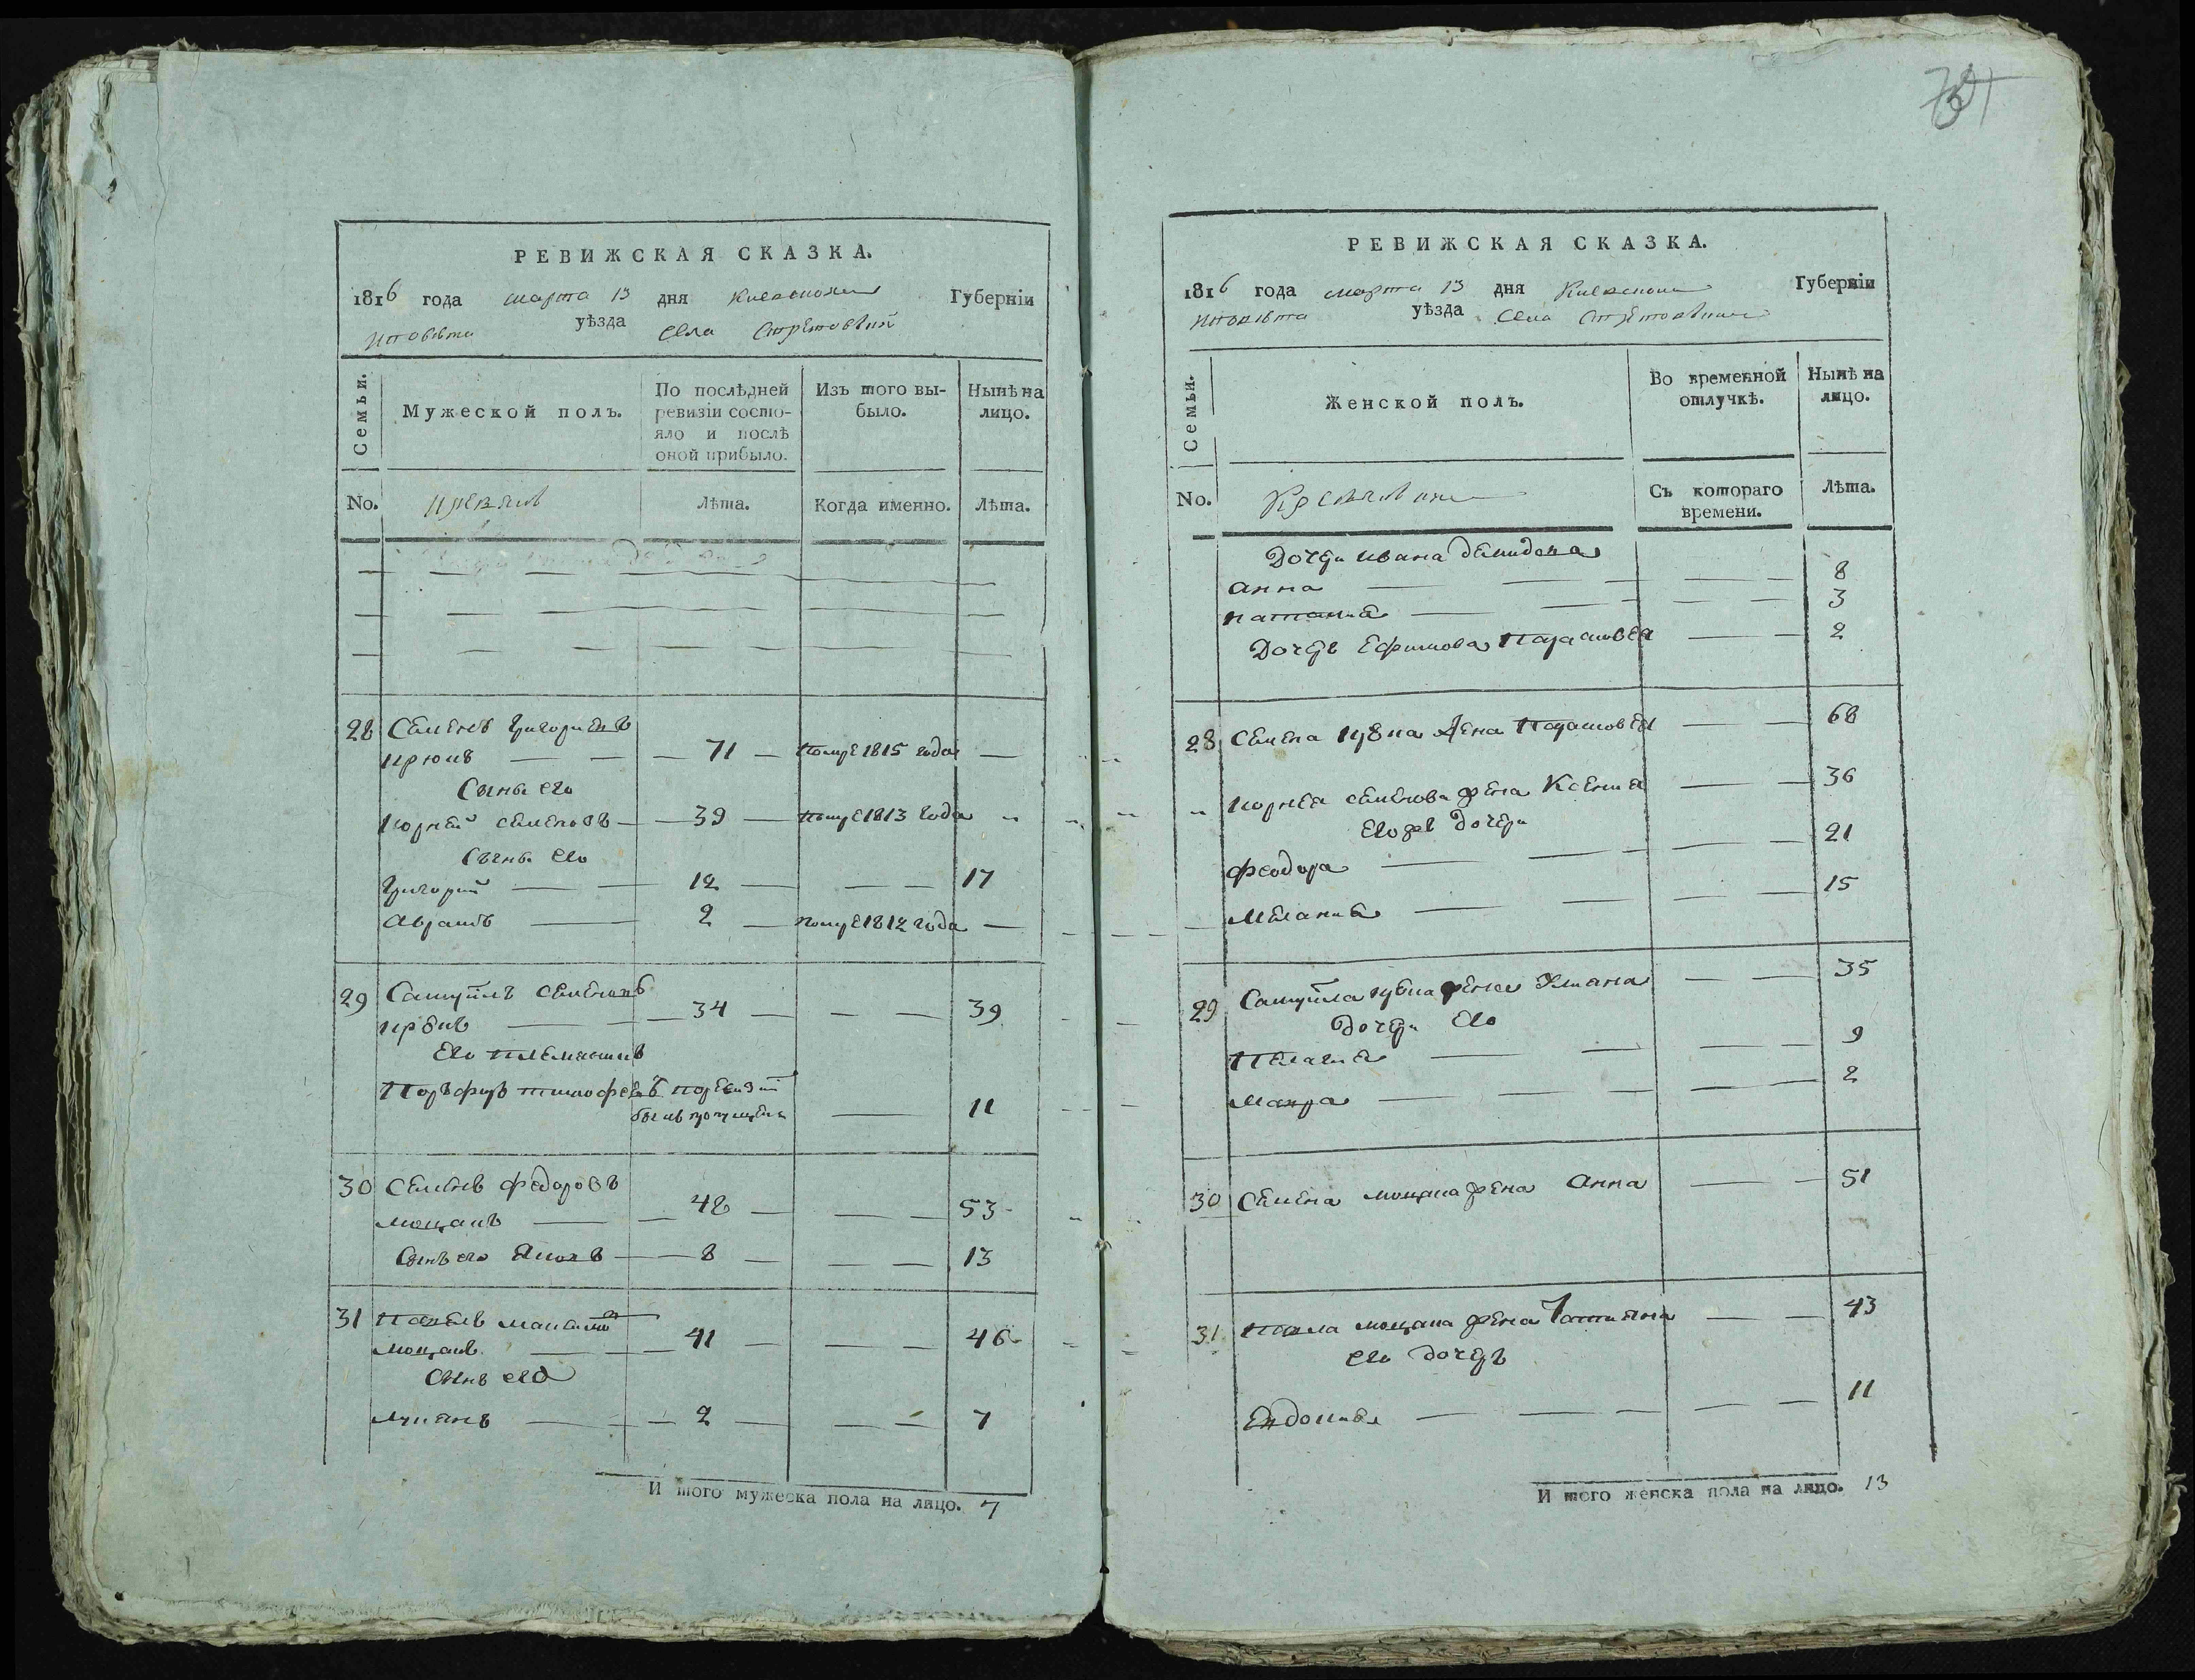 РЕВИЖСКАЯ СКАЗКА.
1816 года марта 13 дня Киевской Губерніи
уѣзда села
Семьи.
Мужеской полъ.
По послѣдней ревизіи состо-
яло и послѣ
оной прибыло.
Изъ того вы-
было.
Нынѣ на
лицо.
No.
Лѣта.
Когда именно.
Лѣта.
28 Семенъ Григориевъ
71 1815 года
Сынъ его
Корней Семеновъ 39 1813 года
Сынъ его
Григорий 12 17
Аврамъ 2 1812 года
29 Самуилъ Семеновъ
34 39
Его племянникъ
Порфиръ Тимофеевъ по ревизіи
былъ пропущенъ 11
30 Семенъ Федоровъ
Мощанъ 48 53
Сынъ его Яковъ 8 13
31 Павелъ
Мощанъ 41 46
Сынъ его
Лукянъ 2 7
И того мужеска пола на лицо. 7
РЕВИЖСКАЯ СКАЗКА.
1816 года марта 13 дня Киевской Губерніи
уѣзда села
Семьи.
Женской полъ.
Во временной
отлучкѣ.
Нынѣ на
лицо.
No.
Съ котораго
времени.
Лѣта.
Дочери Ивана Демидова
Анна 8
Наталия 3
Дочеръ Ефимова Парасковея 2
28 Семена жена Парасковея 68
Корнея Семенова жена Ксения 36
Его же дочери
Феодора 21
Мелания 15
29 Самуила жена Уляна 35
Дочери его
Пелагия 9
Мавра 2
30 Семена Мощана жена Анна 51
31 Павла Мощана жена Татияна 43
его дочеръ
Евдокия 11
И того женска пола на лицо. 13